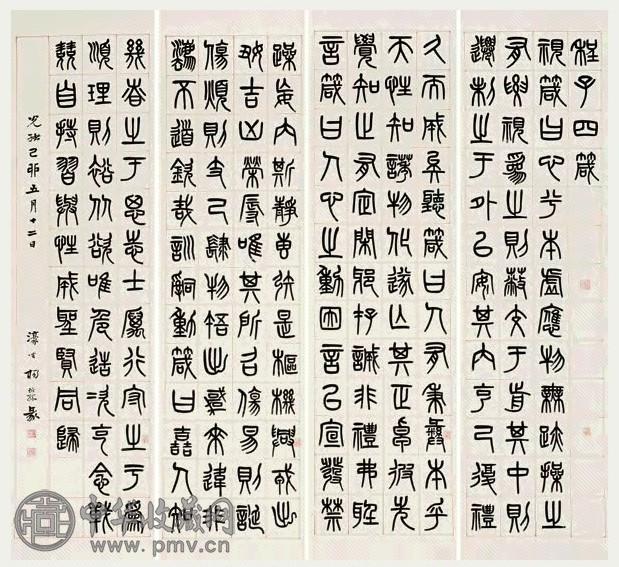 程子四箴
視箴曰心兮本虛應物無跡操之
有要視爲之則蔽交于前其中則
遷制之于外以安其內克己復禮
久而誠矣聽箴曰人有秉彝本乎
天性知誘物化遂亡其正卓彼先
覺知止有定閑邪存誠非禮勿聽
言箴曰人心之動因言以宣發禁
躁妄內斯靜專矧是樞機興戎出
好吉凶榮辱唯其所召傷易則誕
傷煩則支己肆物忤出悖來違非
灋不道欽哉訓辭動箴曰嚞人知
幾誠之于思志士厲行守之于爲
順理則裕從欲唯危造次克念戰
兢自持習與性成聖賢同歸
光緒己卯五月十二日
濠叟楊沂孫篆
中华收藏网
www.pmv.cn